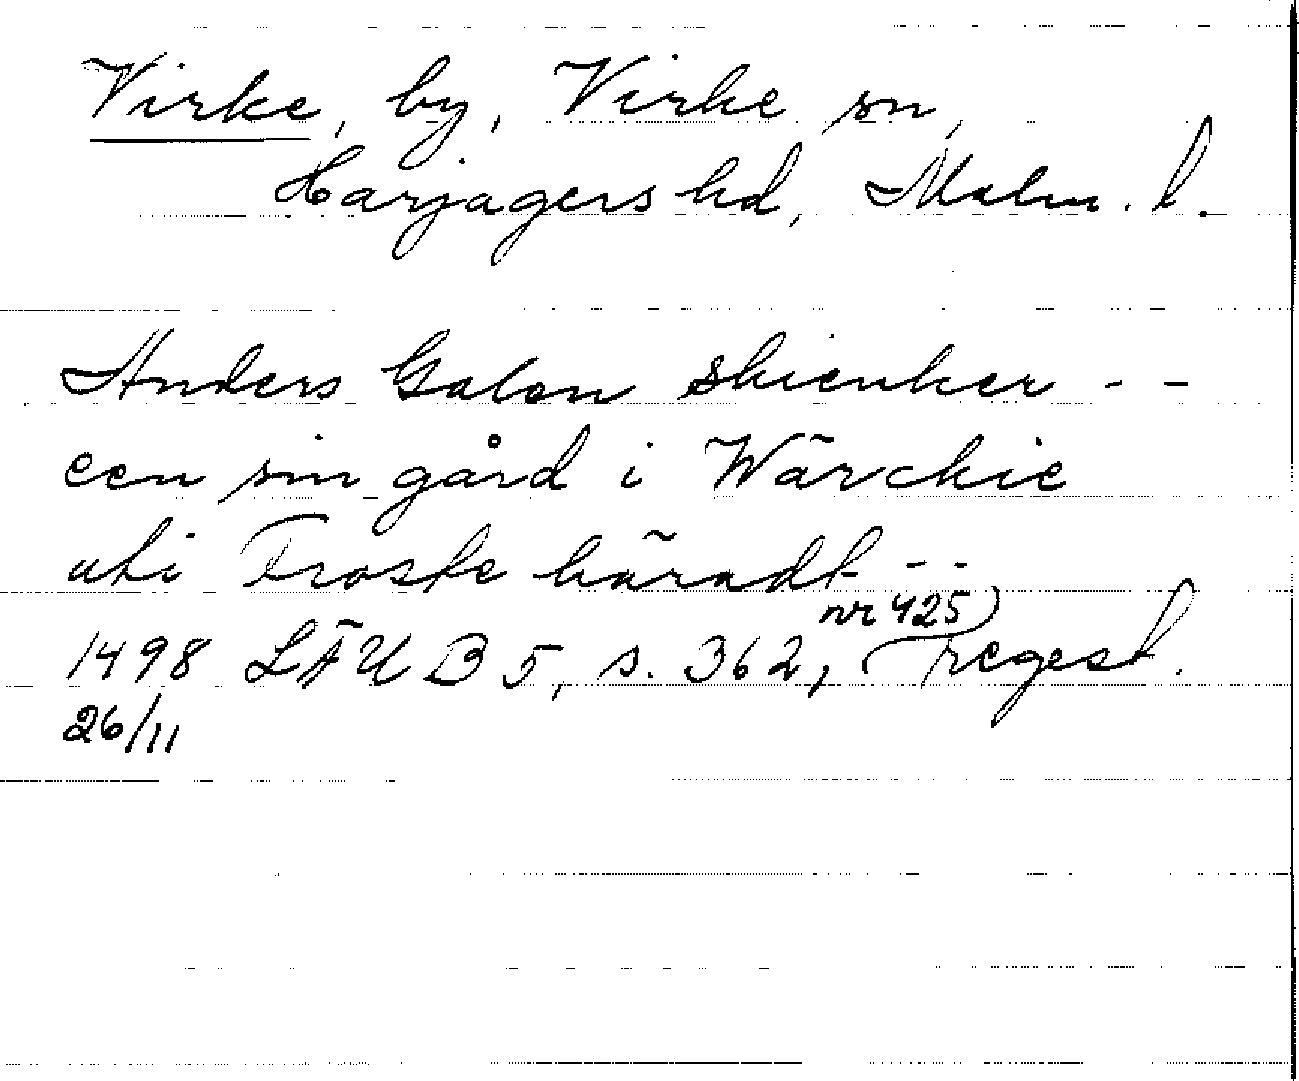 Virke, by, Virke sn,
Harjagers hd, Malm. l.
Anders Galen skienker - -
een sin gård i Wärckie
uti Froste häradt - -
nr 425
1498 LÄU B 5, s. 362, regest.
26/11